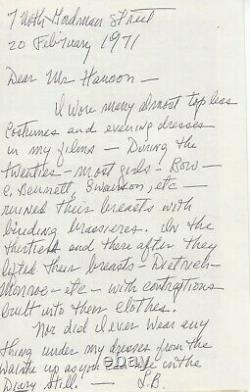 7 North Goodman Street
20 February 1971
Dear Mr Hanson –
I wore many almost topless
costumes and evening dresses
in my films – During the
twenties – most girls – Bow –
C. Bennett, Swanson, etc –
ruined their breasts with
binding brassieres. In the
thirties and there after they
lifted their breasts – Dietrich –
Monroe – etc – with contraptions
built into their clothes.
Nor did I ever wear any
thing under my dresses from the
waist up as you can see in the
Diary Still. – L.B.
ebay